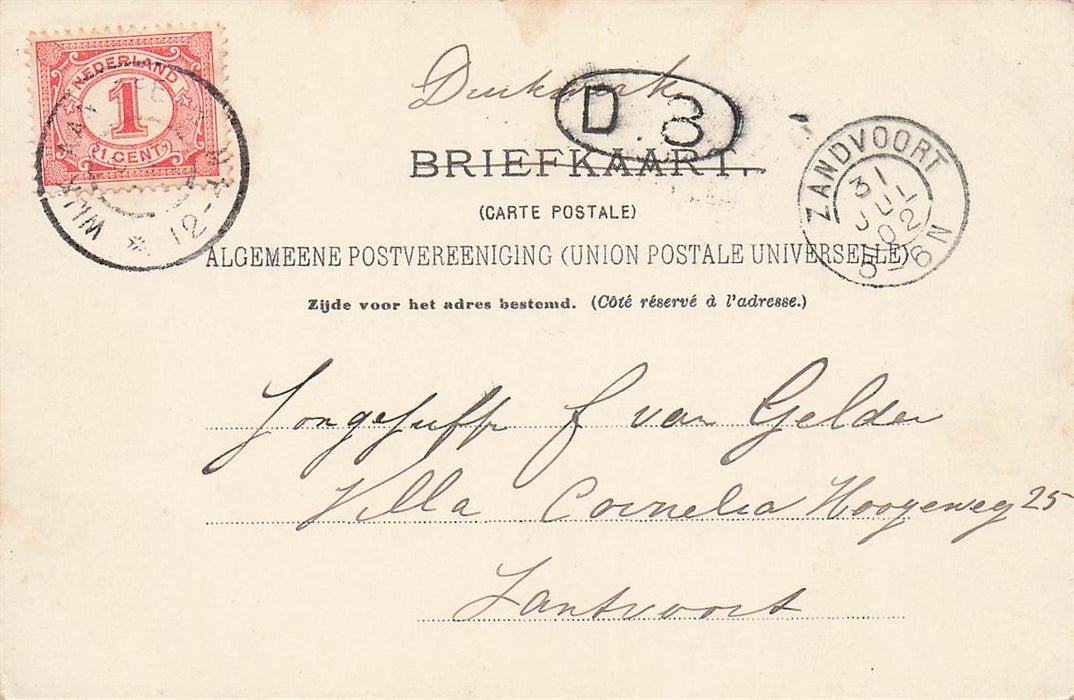 NEDERLAND
1
(1 CENT)
12-4
Drukwerk
D 3
BRIEFKAART.
ZANDVOORT
31
JUL
02
5-6N
(CARTE POSTALE)
ALGEMEENE POSTVEREENIGING (UNION POSTALE UNIVERSELLE)
Zijde voor het adres bestemd. (Côté réservé à l'adresse.)
Jongejuffr f van Gelder
Villa Cornelia Hoogeweg 25
Zantvoort